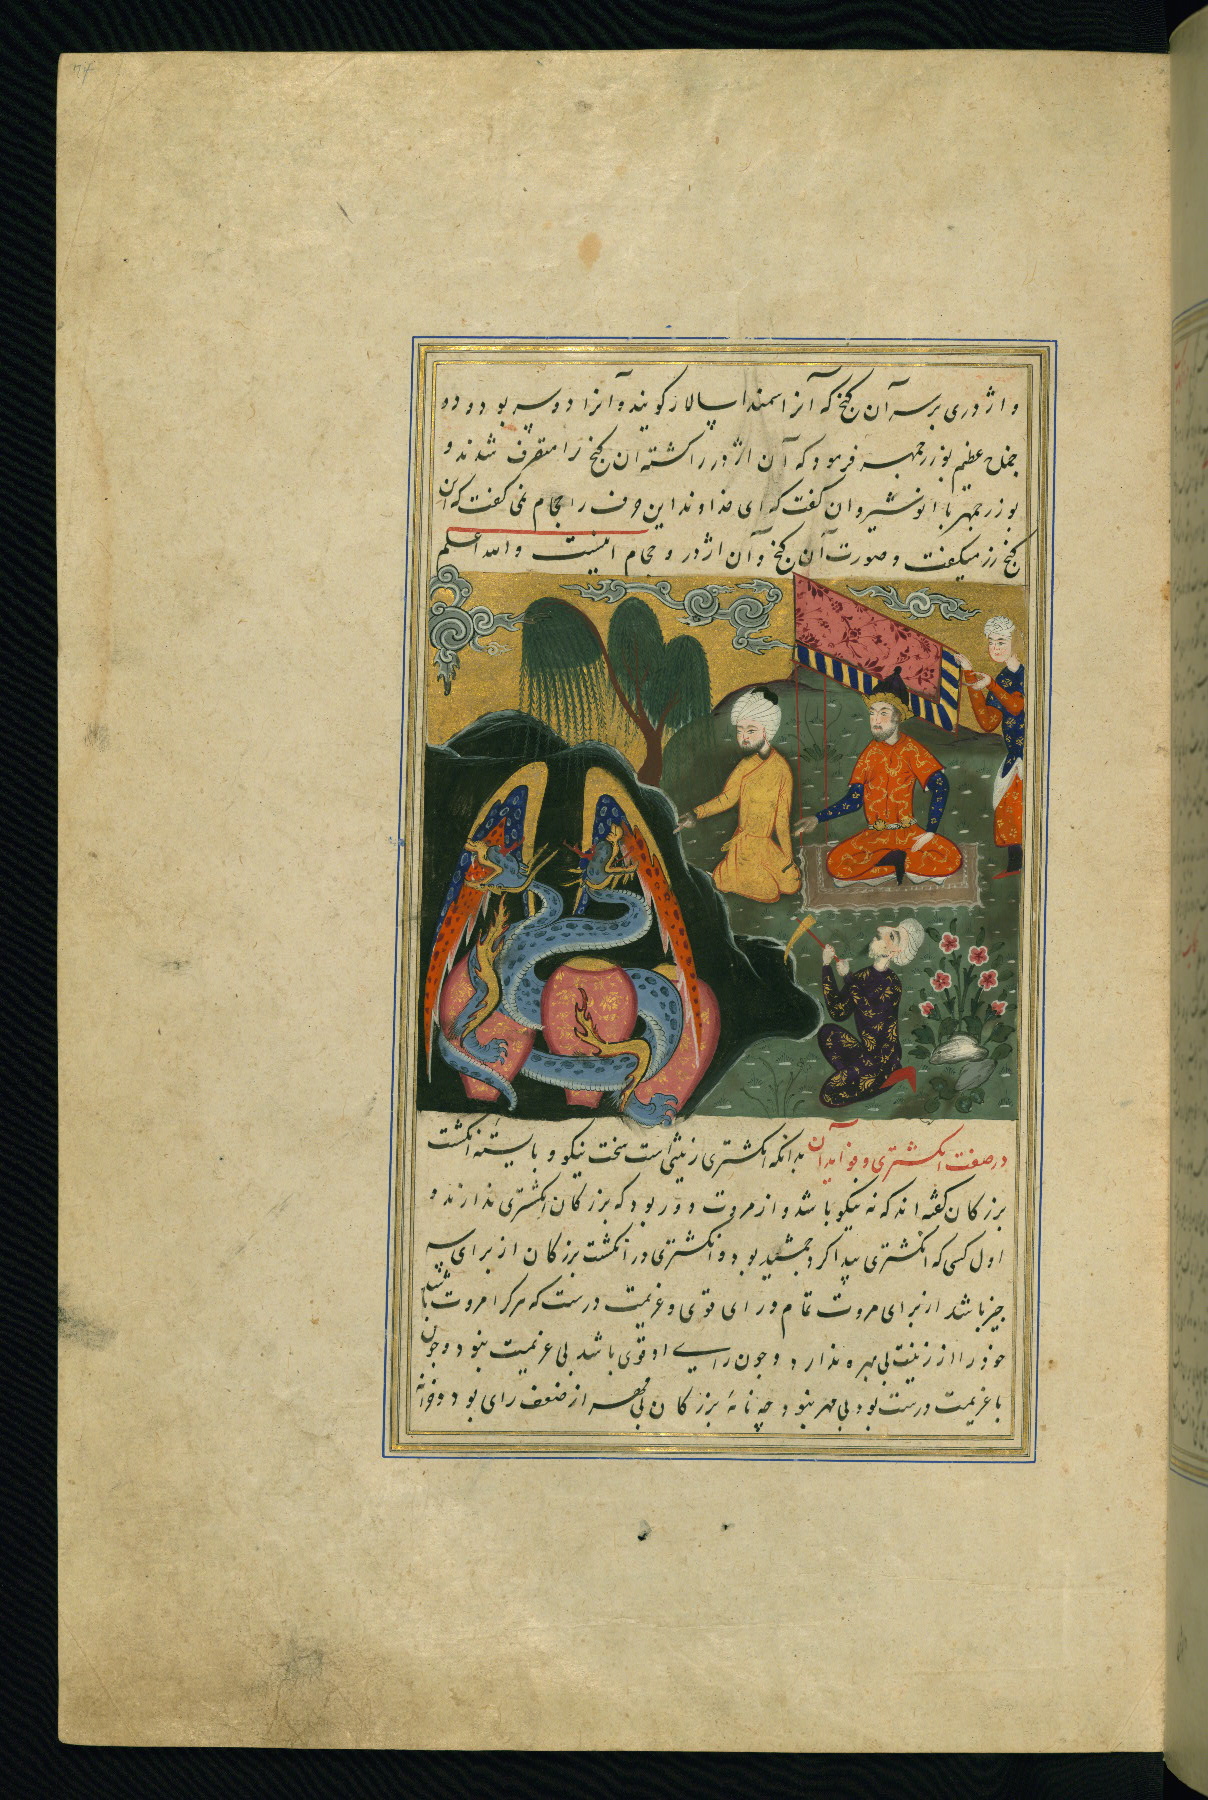 و اژدری بر سر آن گنج که آنرا سمندا سپالار گویند و آنرا دو سر بود و دو
جناح عظیم بوزرجمهر فرمود که آن اژدر را کشته ان گنج را متصرف شدند و
بوزرجمهر با انوشیروان گفت که ای خداوند این حرف را حجام نمی گفت که این
گنج زر میگفت و صورت آن گنج و آن اژدر و حجام اینست و الله اعلم
در صفت انگشتری و فواید آن بدانکه انگشتری زینتی است سخت نیکو و بایسته انگشت
بزرکان گفته اند که نه نیکو باشد و از مروت دور بود که بزرکان انگشتری ندارند و
اول کسی که انگشتری پیدا کرد جمشید بود و انگشتری در انگشت بزرکان از برای سه
چیز باشد از برای مروت تمام و رای قوی و عزیمت درست که هرکرا مروت باشد
خود را از زینت بی بهره ندارد و چون رای او قوی باشد بی عزیمت نبود و چون
با عزیمت درست بود بی مهر نبود چه نامۀ بزرکان بی مهر از ضعف رای بود و خزانه